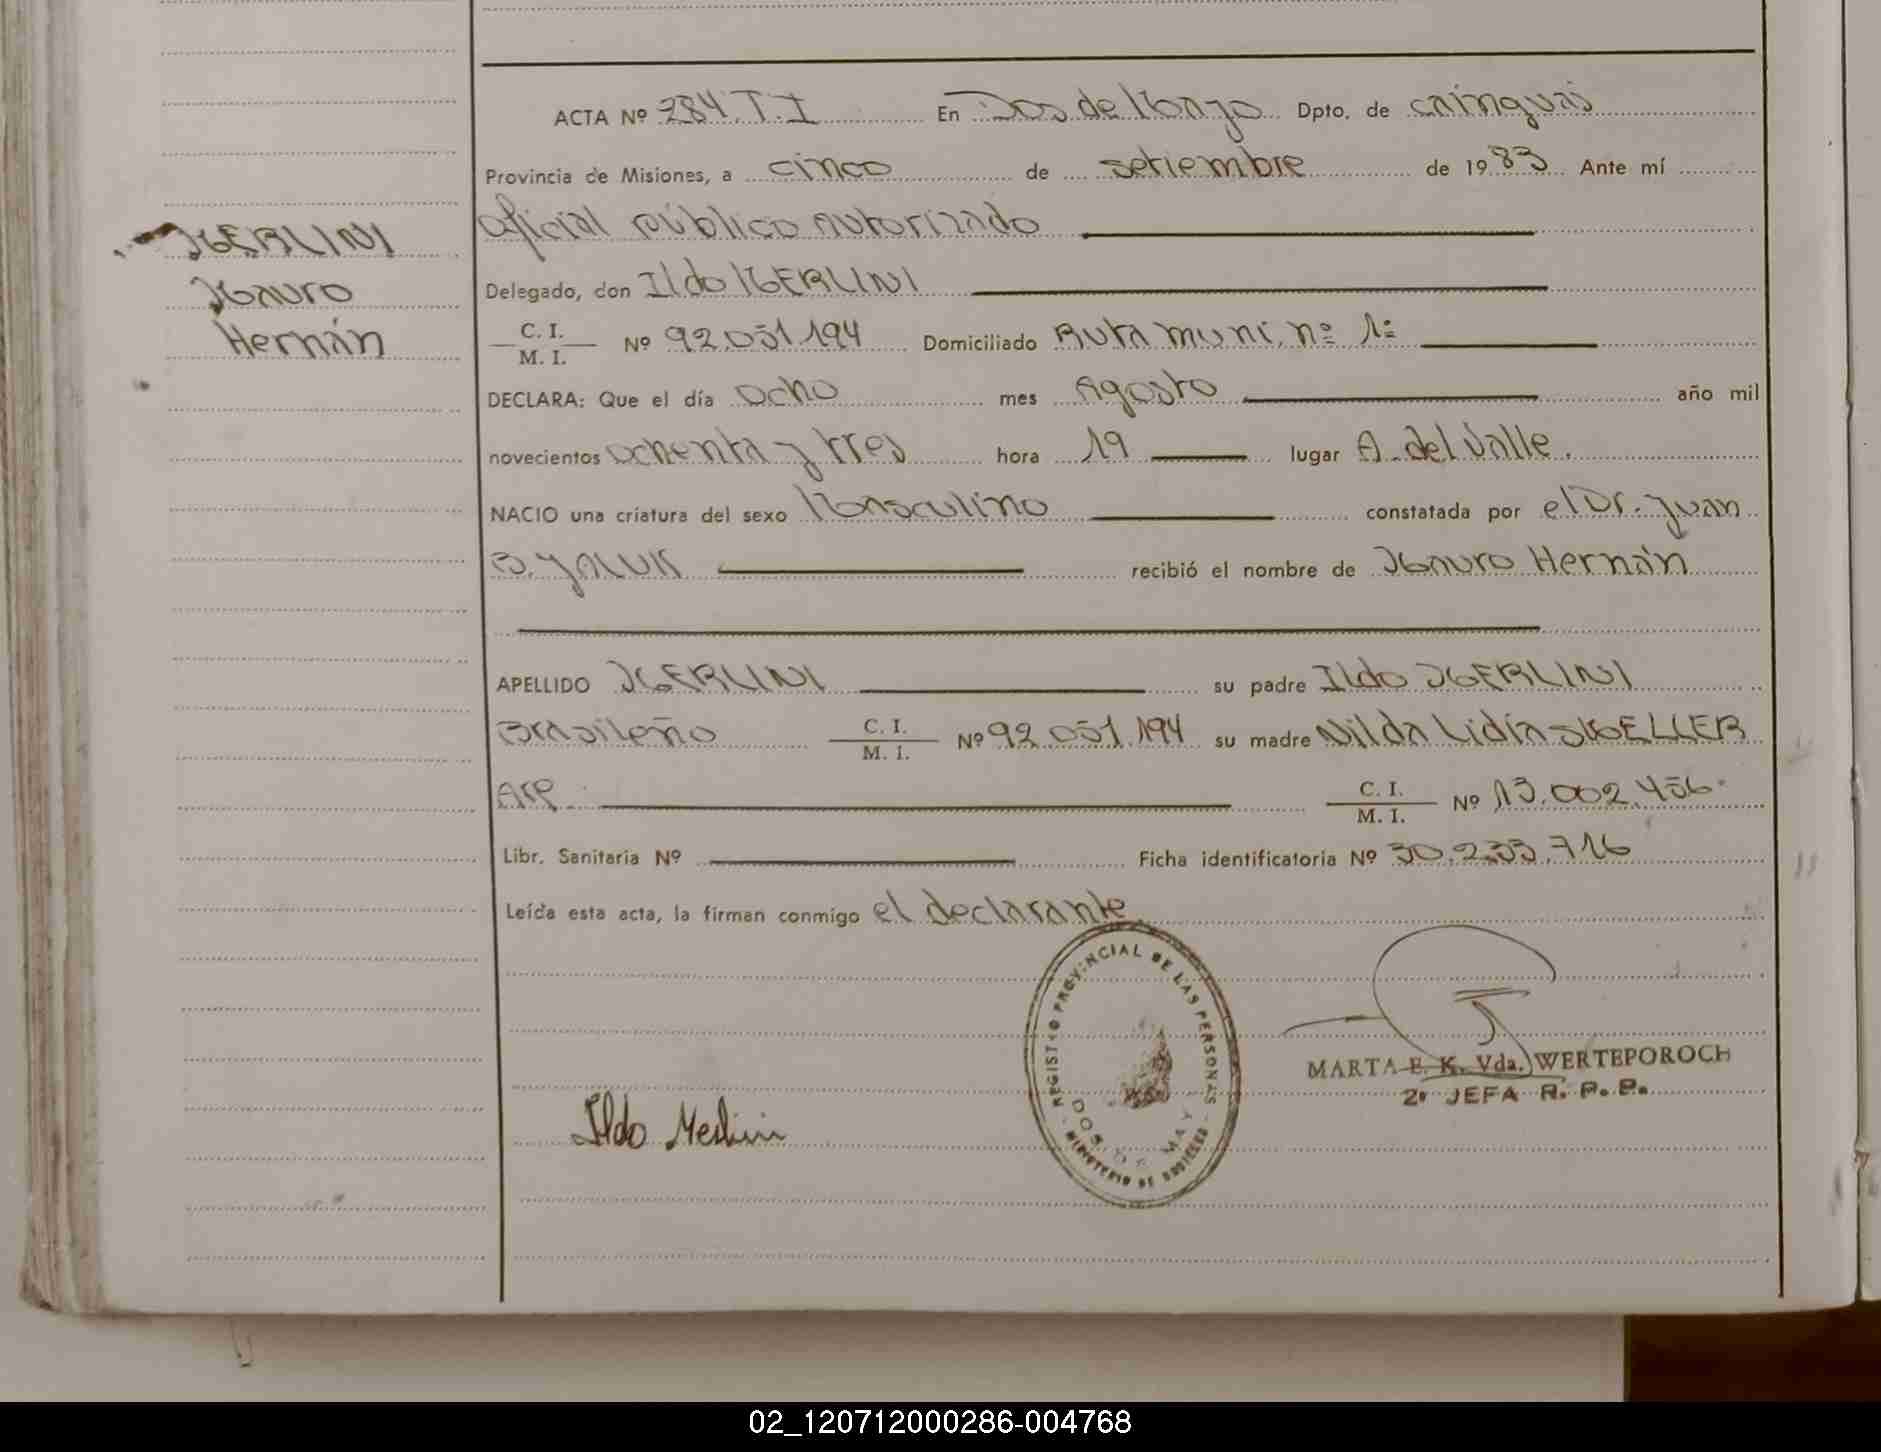 ACTA Nº 284. T. I En Dos de Mayo Dpto. de cainguás
Provincia de Misiones, a cinco de setiembre de 1983 Ante mí
MERLINI
oficial público autorizado
Mauro
Delegado, don Ildo MERLINI
Hernán
C. I. / M. I. Nº 92.051.194 Domiciliado Ruta muni. nº 1º
DECLARA: Que el día ocho mes Agosto año mil
novecientos ochenta y tres hora 19 lugar A. del Valle.
NACIO una criatura del sexo Masculino constatada por el Dr. Juan
B. YALUK recibió el nombre de Mauro Hernán
APELLIDO MERLINI su padre Ildo MERLINI
Brasileño C. I. / M. I. Nº 92.051.194 su madre Nilda Lidia MOELLER
Arg. C. I. / M. I. Nº 13.002.456.
Libr. Sanitaria Nº Ficha identificatoria Nº 30.233.716
Leída esta acta, la firman conmigo el declarante.
REGISTRO PROVINCIAL DE LAS PERSONAS
DOS DE MAYO
MINISTERIO DE GOBIERNO
MARTA E. K. Vda. WERTEPOROCH
2º JEFA R. P. P.
Ildo Merlini
02_120712000286-004768